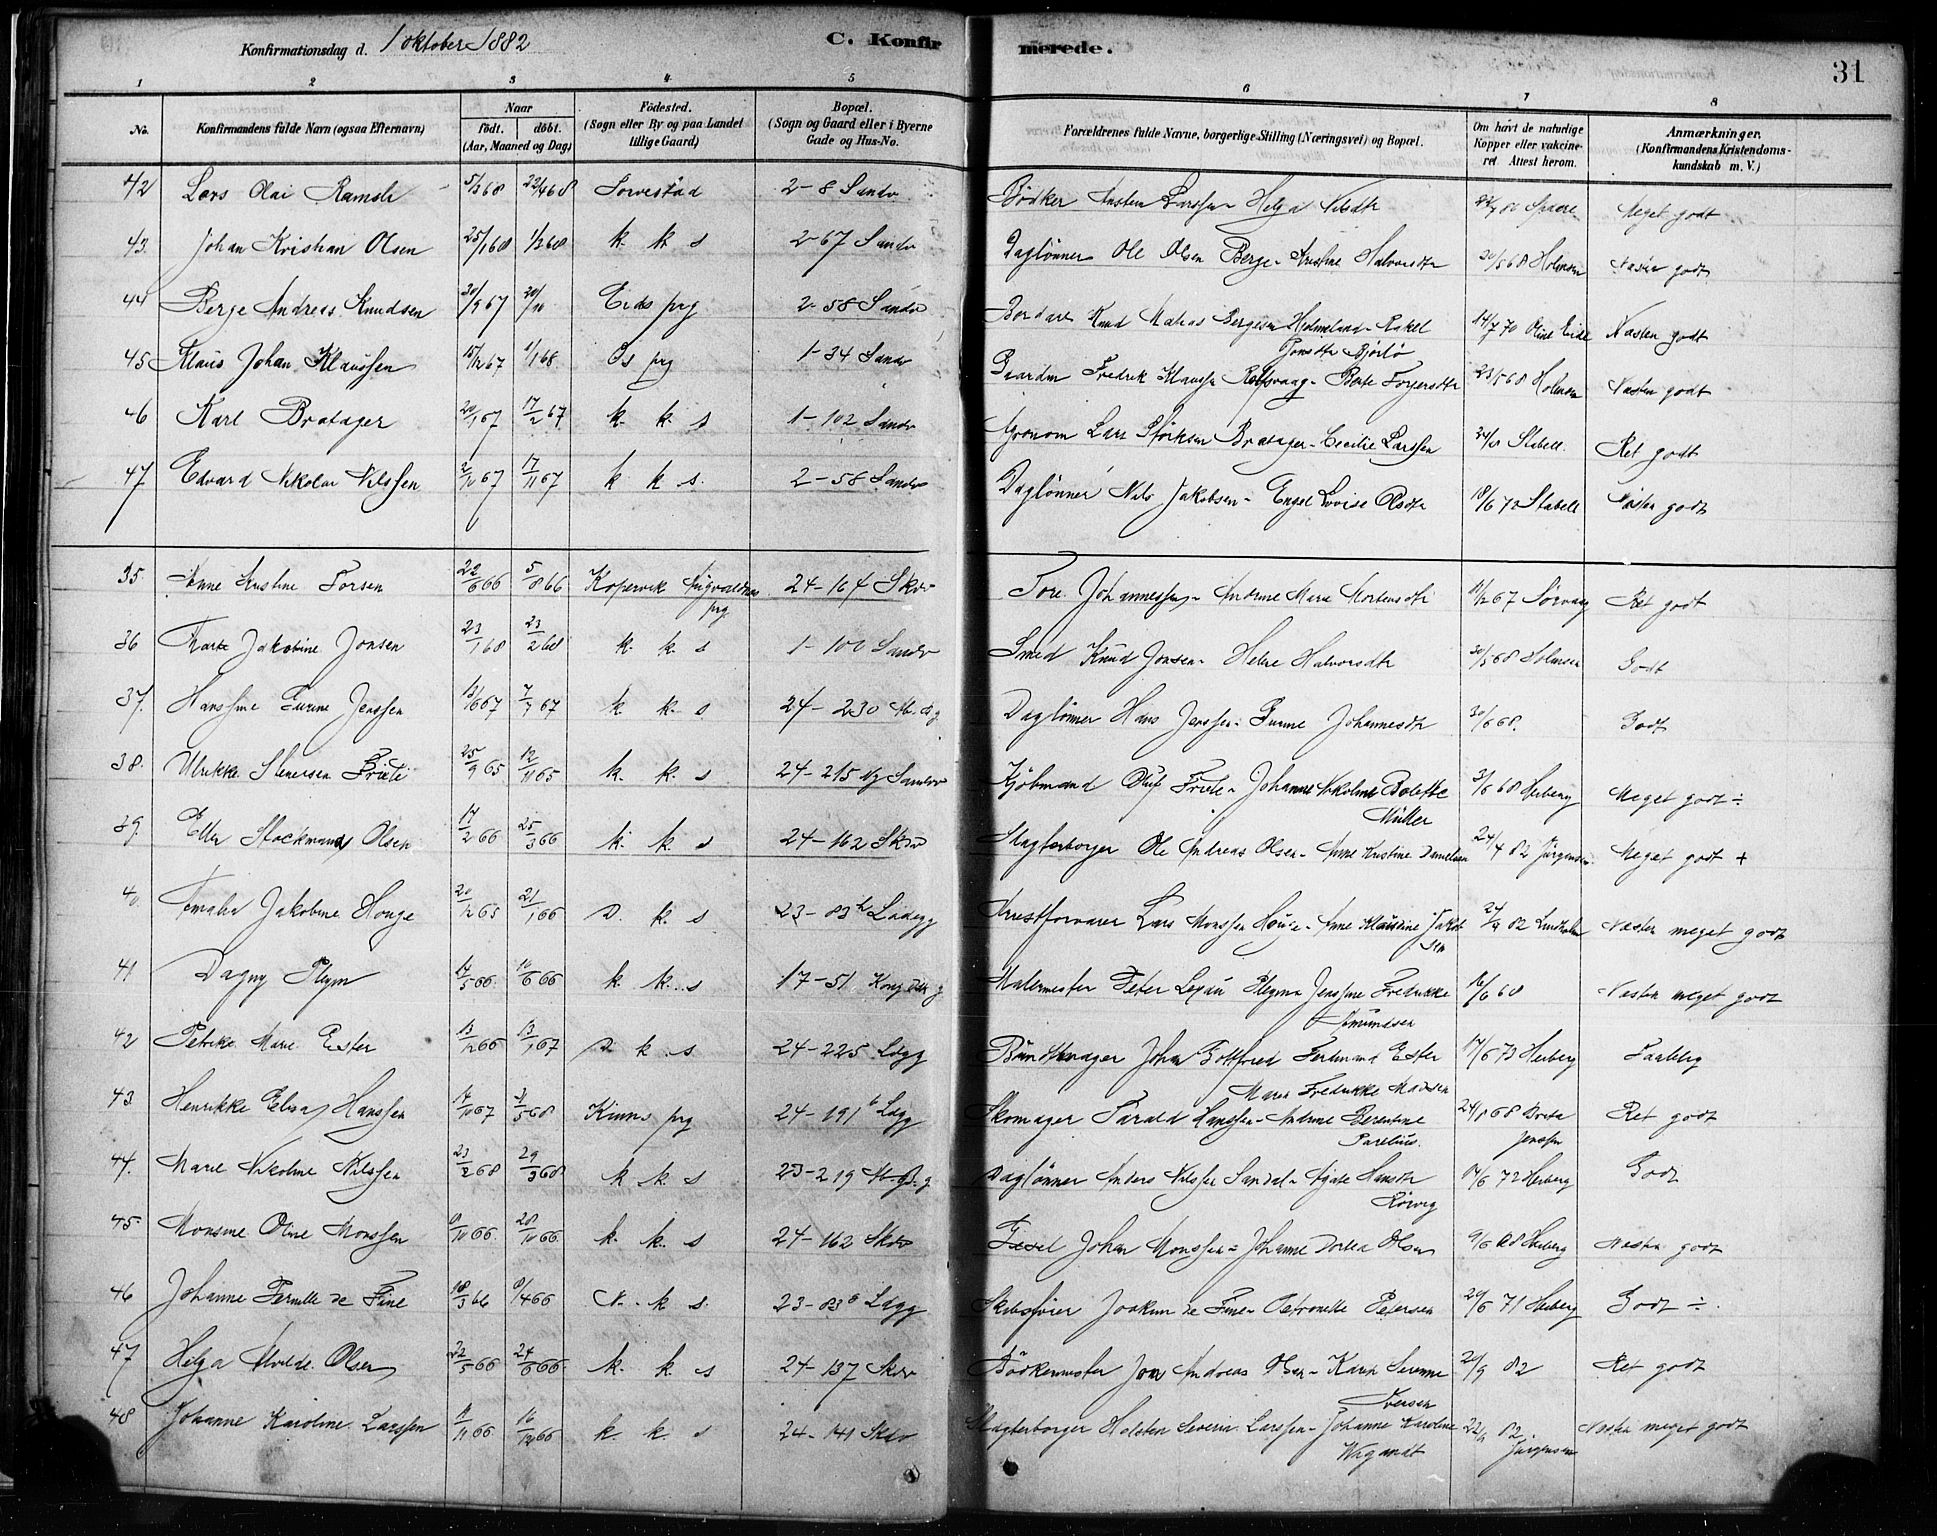 Konfirmationsdag d. 1 oktober 1882
C. Konfirmerede.
31
1 2 3 4 5 6 7 8
No.
Konfirmandens fulde Navn (ogsaa Efternavn)
Naar
födt. döbt.
(Aar, Maaned og Dag)
Födested.
(Sogn eller By og paa Landet
tillige Gaard)
Bopæl.
(Sogn og Gaard eller i Byerne
Gade og Hus-No.
Forældrenes fulde Navne, borgerlige Stilling (Næringsvei) og Bopæl.
Om havt de naturlige
Kopper eller vakcine-
ret Attest herom.
Anmærkninger.
(Konfirmandens Kristendoms-
kundskab m. V.)
42 Lars Olai Ramsli 5/3 68 22/4 68 2-8 Sandv Bödker Larssen Helga Meget godt
43. Johan Kristian Olsen 25/1 68 1/3 68 k. k. s 2-67 Sandv Daglönner Ole Olsen Berge - Kristine Halvorsdtr 20/5 68 Holmsen Næsten godt
44 Berge Andreas Knudsen 30/9 67 20/10 Eids prg 2-58 Sandv Knud Matias Bergesen Helmeland - Rakel 14/7 70 Eide Næsten godt
Jonsdtr Björlö
45 Klaus Johan Klaussen 15/12 67 1/1 68 Os prg 1-34 Sandv Gaardm Fredrik Klaussen Rolfsvaag - Berte 23/5 68 Holmsen Næsten godt
46 Karl Bratager 20/1 67 17/2 67 k. k. s 1-102 Sandv Lars Störksen Bratager - Cecilie Larssen Stabell. Ret godt
47 Edvard Nikolai Nilssen 2/10 67 17/11 67 k k s. 2-58 Sandv Daglönner Nils Jakobsen - Engel Lovise Olsdtr 18/6 70 Stabell Næsten godt
35. Anne Kristine Torsen 22/6 66 5/8 66 Kopervik Augvaldnes 24-164 Skv Tore Johannessen - Andrine Marie Mortensdtr 11/12 67 Sörvaag Ret godt
prg
36 Jakobine Jonsen 23/1 68 23/2 68 k. k. s 1-100 Sandv Smed Knud Jonsen - Helene Halvorsdtr 20/5 68 Holmsen Godt
37. Hanssine Gurine Jenssen 13/6 67 7/7 67 k. k. s 24-230 Daglönner Hans Jenssen - Gurine Johannesdtr 30/6 68. Godt
38. Ulrikke Stenersen Friele 25/9 65 12/11 65 k. k. s 24-215 Ny Sandv Kjöbmand Oluf Friele - Johanne Nikoline Bolette 3/6 68 Herberg Meget godt ÷
Müller
39. Stockmann Olsen 17/2 66 25/3 66 k. k. s 24-162 Skv Slagterborger Ole Andreas Olsen - Anne Kristine Danielsen 24/4 82 Jürgensen Meget godt +
40. Amalia Jakobine Houge 20/12 65 21/1 66 D. k. s 23-83 Ladegg Arrestforvarer Lars Monssen Houge - Anne Jakob 24/9 82 Lindholm Næsten meget godt
sen
41 Dagny Pleym 17/5 66 16/6 66 k. k. s 17-51 Malermester Peter Pleym Jenssine Fredrikke 16/6 68 Næsten meget godt
Amundsen
42 Petrike Marie Ester 13/12 66 13/1 67 D. k. s 24-225 Ldgg Bundtmager Johan Gottfried Ferdinand Ester 17/6 73 Herberg Taalelig
Maren Fredrikke Madsen
43 Henrikke Elisa Hanssen 14/10 67 5 68 Kinns prg 24-191 b Ldgg Skomager Tarald Hanssen - Andrine Berentine 24/8 68 Jenssen Ret godt
Parelius.
44. Marie Nikoline Nilssen 23/2 68 29/3 68 k k s 23-219 Daglönner Anders Nilssen Sandal - Agate Hansdtr 17/6 72 Herberg Godt
Rörvig
45. Monsine Oline Monssen 9/10 66 28/10 66 k. k. s 24-162 Skv Johan Monssen - Johanne Dortea Olsen 9/6 68 Herberg Næsten godt
46 Johanne Pernelle de Fine 18/3 66 8/4 66 N. k s. 23-83 b Ldgg Skibsförer Joakim de Fine - Petronelle Petersen 20/6 71 Herberg Godt ÷
47 Helga Alvilde Olsen 22/5 66 24/6 66 k. k s 24-137 Skv Bödkermester Jon Andreas Olsen - Karen Serine 20/9 82 Ret godt
Iversen
48 Johanne Karoline Larssen 11/11 66 16/12 66 k. k. s 24-141 Skv Slagterborger Holsten Severin Larssen - Johanne Karoline 22/9 82 Jürgensen Næsten meget godt
Wiegandt